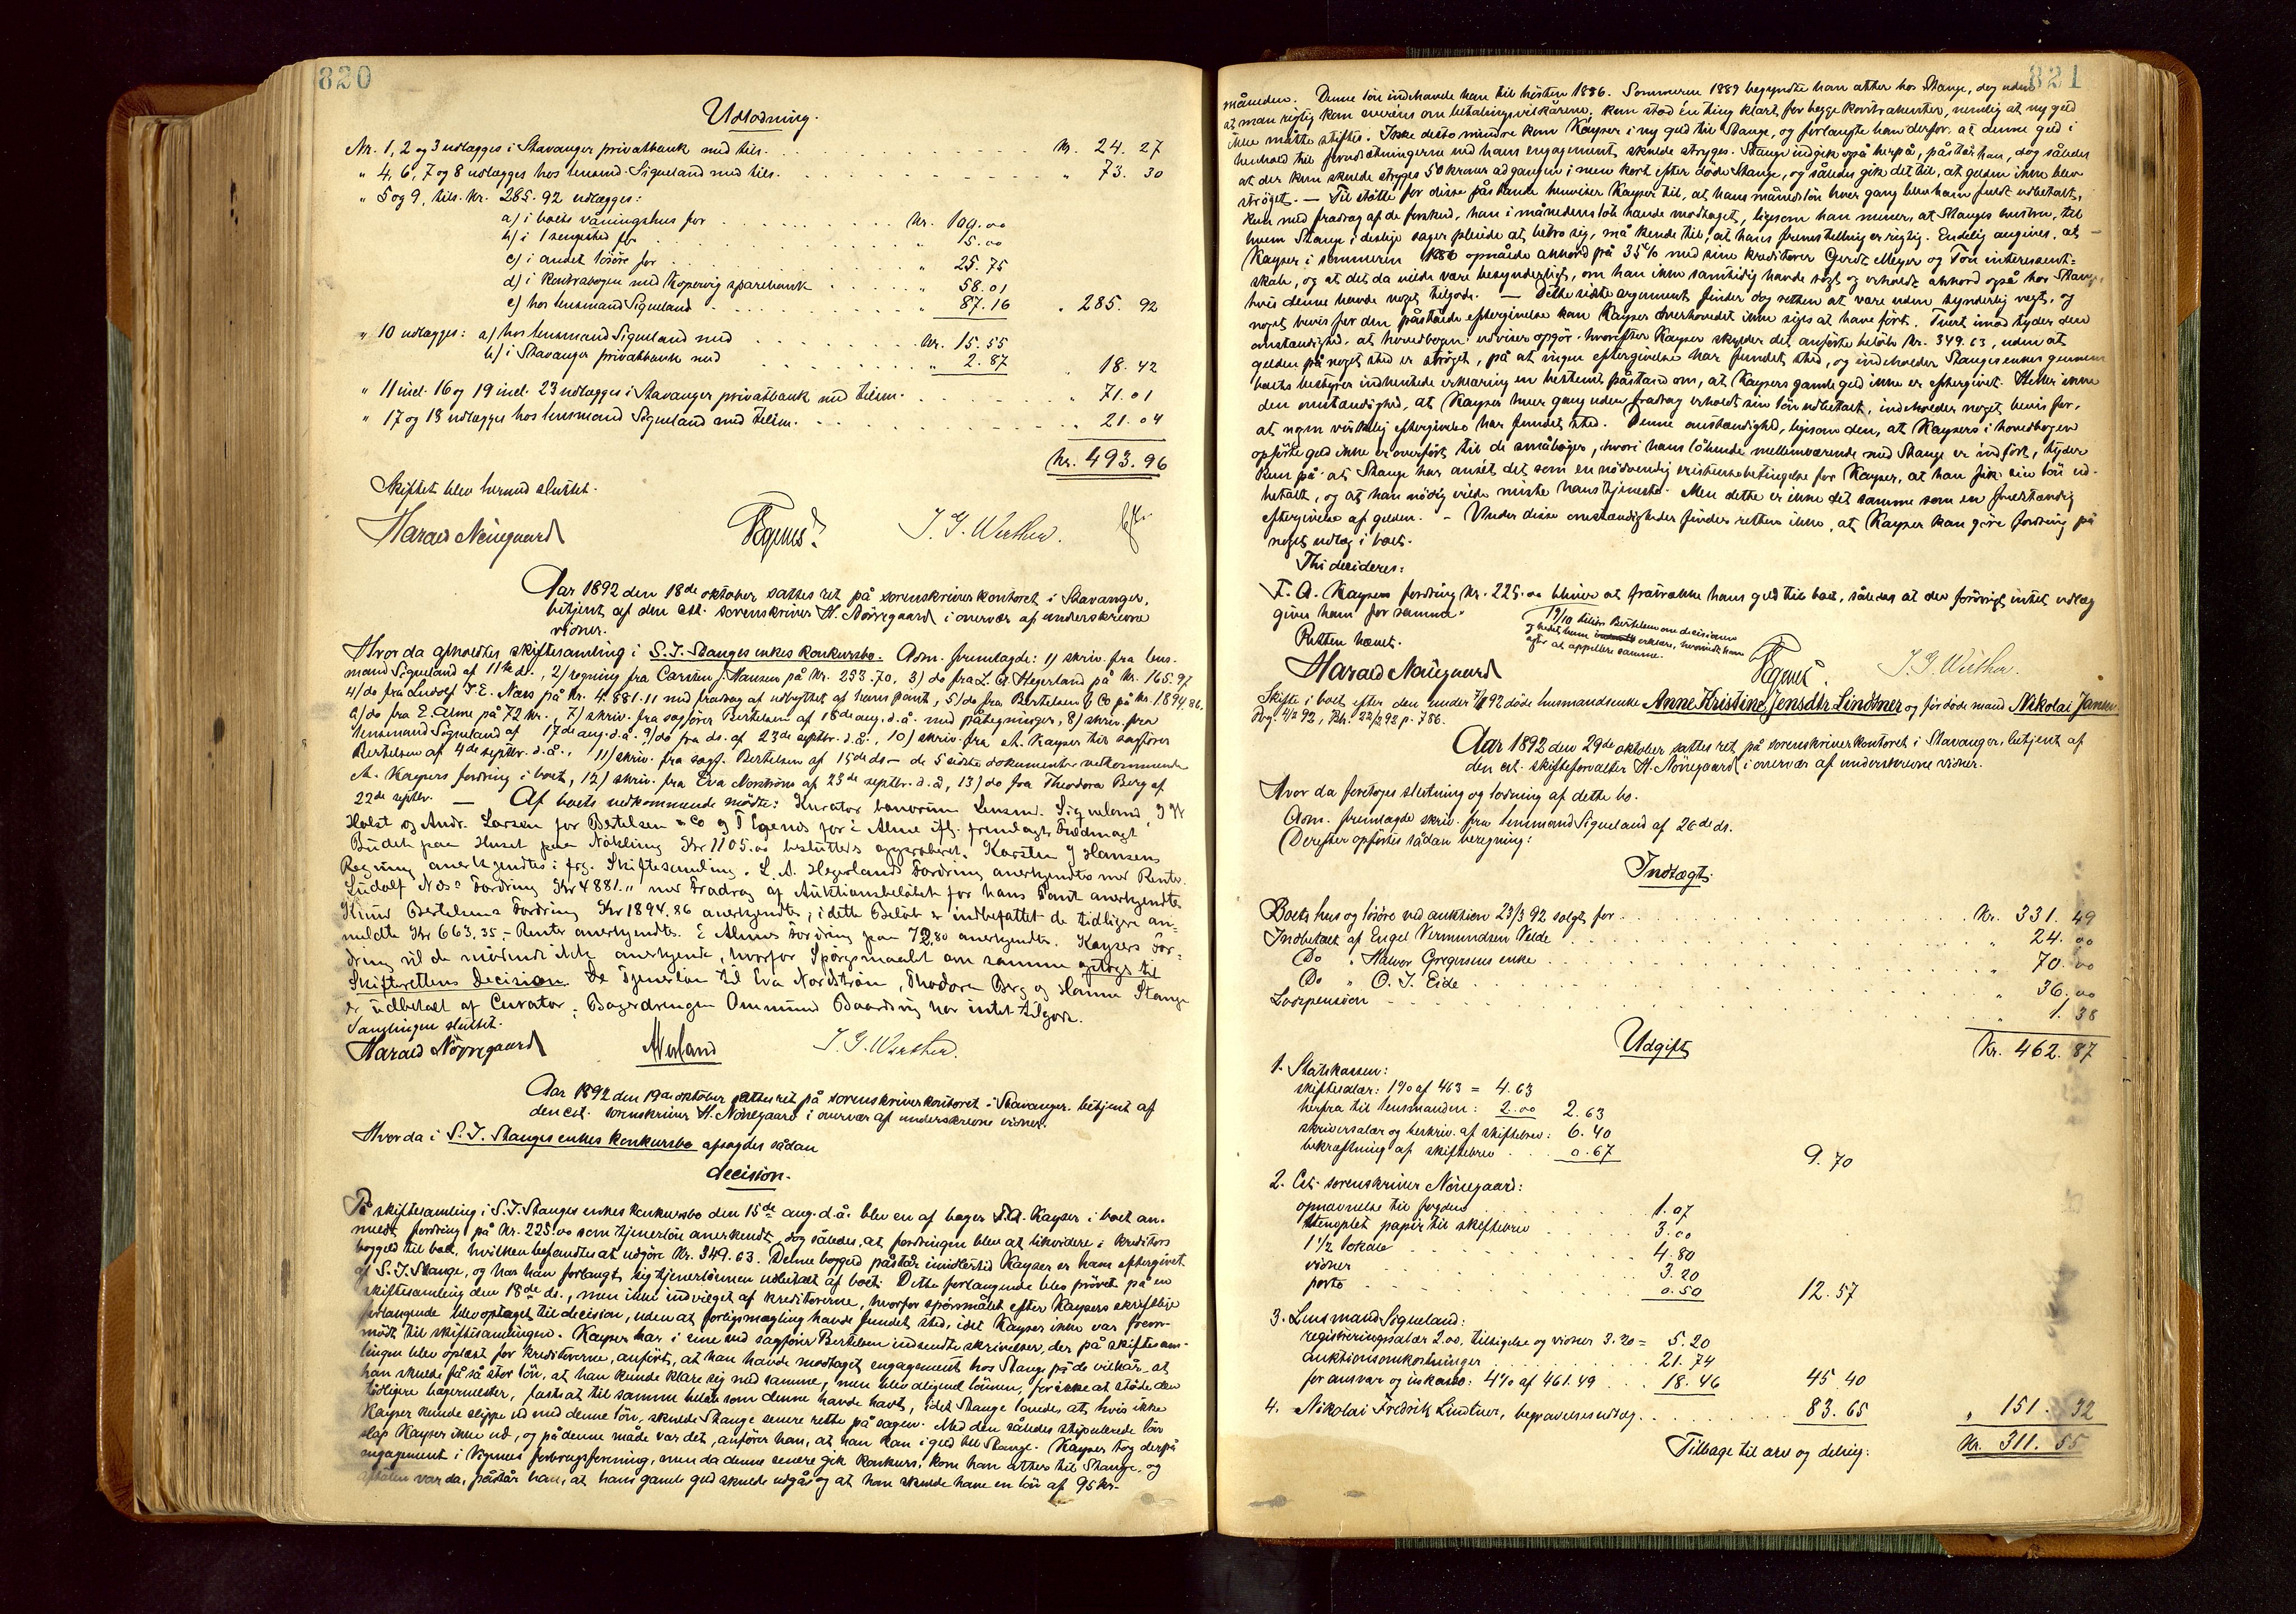 820
Udlodning.
Nr. 1, 2 og 3 udlægges i Stavanger privatbank med tils. Kr. 24.27
" 4, 6, 7 og 8 udlægges hos lensmd. Sigveland med tils. " 73.30
" 5 og 9, tils. Kr. 285.92 udlægges:
a) i boets våningshus for Kr. 100.00
b) i 1 sengested for " 15.00
c) i andet løsøre for " 25.75
d) i Kontrabogen med Kopervig sparebank " 58.01
e) hos lensmand Sigveland " 87.16 " 285.92
" 10 udlægges: a) hos lensmand Sigveland med Kr. 15.55
b) i Stavanger privatbank med " 2.87 " 18.42
" 11 incl. 16 og 19 incl. 23 udlægges i Stavanger privatbank med tilsm. " 71.01
" 17 og 18 udlægges hos lensmand Sigveland med tilsm. " 21.04
Kr. 493.96
Skiftet blev hermed sluttet.
Harald Nörregaard J. G. Wiethen.
Aar 1892 den 18de oktober sattes ret på sorenskriverkontoret i Stavanger,
betjent af den cst. sorenskriver H. Nörregaard i overvær af underskrevne
vidner.
Hvor da afholdtes skiftesamling i S. J. Stanges enkes konkursbo. Adm. fremlagde: 1) skriv. fra lens-
mand Sigveland af 11te ds., 2) regning fra Carsten J. Hansen på Kr. 253.70, 3) do fra L. A. Hegerland på Kr. 165.97
4) do fra Ludolf J. E. Næs på Kr. 4.881.11 med fradrag af udbyttet af hans pant, 5) do fra Bertelsen & Co på Kr. 1894.86,
6) do fra E. Alme på 72 Kr., 7) skriv. fra sagförer Bertelsen af 18de aug. d.å. med påtegninger, 8) skriv. fra
lensmand Sigveland af 17de aug. d.å. 9) do fra ds. af 23de septbr. d.å., 10) skriv. fra A. Kayser til sagförer
Bertelsen af 4de septbr. d.å., 11) skriv. fra sagf. Bertelsen af 15de ds – de 5 sidste dokumenter vedkommende
A. Kaysers fordring i boet, 12) skriv. fra Eva Nordström af 23de septbr. d.å, 13) do fra Theodora Berg af
22de septbr. — Af boets vedkommende mødte: Kurator bonorum Lensm. Sigveland, J W
Holst og Andr. Larsen for Bertelsen & Co og T Egenes for E Alme ifl. fremlagt Fuldmagt
Budet paa Huset paa Nökling Kr 1105.00 besluttedes approberet. Karsten J Hansens
Regning anerkjendtes i frg. Skiftesamling. L. A. Hegerlands Fordring anerkjendtes med Renter.
Ludolf Næs's Fordring Kr 4881.11 med Fradrag af Auktionsbelöbet for hans Pant anerkjendtes
Knud Bertelsens Fordring Kr 1894.86 anerkjendtes, i dette Belöb er indbefattet de tidligere an-
meldte Kr 663.35, – Renter anerkjendtes. E Almes Fordring paa 72.80 anerkjendtes. Kaysers For-
dring vil de mödende ikke anerkjende, hvorfor Spörgsmaalet om samme optoges til
Skifterettens Decision. De Tjenerlön til Eva Nordström, Theodora Berg og Hanna Stange
er udbetalt af Curator; Bagerdrengen Ommund Baardsen har intet tilgode.
Samlingen sluttet.
Harald Nörregaard J. G. Wiethen.
Aar 1892 den 19de oktober sattes ret på sorenskriverkontoret i Stavanger, betjent af
den cst. sorenskriver H. Nörregaard i overvær af underskrevne vidner.
Hvor da i S. J. Stanges enkes konkursbo afsagdes sådan
decision.
På skiftesamling i S. J. Stanges enkes konkursbo den 15de aug. d.å. blev en af bager F. A. Kayser i boet an-
meldt fordring på Kr. 225.00 som tjenerlön anerkendt, dog således, at fordringen blev at likvidere i kreditors
boggeld til boet, hvilken befandtes at udgjöre Kr. 349.63. Denne boggeld påstår imidlertid Kayser er ham eftergivet
af S. J. Stange, og har han forlangt sig tjenerlönnen udbetalt af boet. Dette forlangende blev prövet på en
skiftesamling den 18de ds., men ikke indvilget af kreditorerne, hvorfor spörsmålet efter Kaysers skriftlige
forlangende blev optaget til decision, uden at forligsmægling havde fundet sted, idet Kayser ikke var frem-
mödt til skiftesamlingen. Kayser har i sine ved sagförer Bertelsen indsendte skrivelser, der på skiftesam-
lingen blev oplæst for kreditorerne, anfört, at han havde modtaget engagement hos Stange på de vilkår, at
han skulde få så stor lön, at han kunde klare sig med samme, men blev alligevel lönnen, for ikke at støde den
tidligere bagermester, fastsat til samme beløb som denne havde havt, idet Stange lovedes at, hvis ikke
Kayser kunde slippe ud med denne lön, skulde Stange senere rette på sagen. Med den således stipulerede lön
slap Kayser ikke ud, og på denne måde var det, anförer han, at han kom i geld til Stange. Kayser tog derpå
engagement i Vignes forbrugsforening, men da denne senere gik konkurs, kom han atter til Stange, og
aftalen var da, påstår han, at hans gamle geld skulde udgå og at han skulde have en lön af 95 kr.
821
måneden. Denne lön indehavde han til hösten 1886. Sommeren 1889 begyndte han atter hos Stange, dog uden
at man rigtig kom overens om betalingsvilkårene; kun stod én ting klart for begge kontrahenter, nemlig at ny geld
ikke måtte stiftes. Ikke desto mindre kom Kayser i ny geld til Stange, og forlangte han derfor, at denne geld i
henhold til forudsætningerne ved hans engagement skulde stryges. Stange indgik også herpå, påstår han, dog således
at der kun skulde stryges 50 kroner ad gangen; men kort efter döde Stange, og således gik det til, at gelden ikke blev
ströget. — Til stötte for disse påstande henviser Kayser til, at hans månedslön hver gang blev ham fuldt udbetalt,
kun med fradrag af de forskud, han i månedens löb havde modtaget, ligesom han mener, at Stanges hustru, til
hvem Stange i deslige sager pleiede at betro sig, må kende til, at hans fremstilling er rigtig. Endelig angives, at
Kayser i sommeren 1886 opnåede akkord på 35% med sine kreditorer Gerdt Meyer og Tou interessent-
skab, og at det da vilde være besynderligt, om han ikke samtidig havde søgt og erholdt akkord også hos Stange,
hvis denne havde noget tilgode. — Dette sidste argument finder dog retten at være uden synderlig vegt, og
noget bevis for den påståede eftergivelse kan Kayser overhovedet ikke siges at have fört. Tvert imod tyder den
omstændighed, at hovedbogen udviser opgör, hvorefter Kayser skylder det anförte belöb Kr. 349.63, uden at
gelden på noget sted er ströget, på at ingen eftergivelse har fundet sted, og indeholder Stanges enkes gennem
boets bestyrer indhentede erklæring en bestemt påstand om, at Kaysers gamle geld ikke er eftergivet. Heller ikke
den omstændighed, at Kayser hver gang uden fradrag erholdt sin lön udbetalt, indeholder noget bevis for,
at nogen virkelig eftergivelse har fundet sted. Denne omstændighed, ligesom den, at Kaysers i hovedbogen
opförte geld ikke er overfört til de småböger, hvori hans löbende mellemværende med Stange er indfört, tyder
kun på at Stange har anseet det som en nödvendig existensbetingelse for Kayser, at han fik sin lön ud-
betalt, og at han nödig vilde miste hans tjeneste. Men dette er ikke det samme som en fuldstændig
eftergivelse af gelden. – Under disse omstændigheder finder retten ikke, at Kayser kan göre fordring på
noget udlæg i boet.
Thi decideres:
F. A. Kaysers fordring Kr. 225.00 bliver at fratrække hans geld til boet, således at der forövrigt intet udlæg
gives ham for samme.
Retten hævet.
19/10 tilskr. Bertelsen om decisionen
og bedet ham erklære, hvorvidt han
agter at appellere samme.
Harald Nörregaard J. G. Wiethen.
Skifte i boet efter den under 92 döde husmandsenke Anne Kristine Jensdtr Lindtner og før döde mand Nikolai Jansen.
Reg. 4/2 92, Bk. 22/2 92 p. 786.
Aar 1892 den 29de oktober sattes ret på sorenskriverkontoret i Stavanger, betjent af
den cst. skifteforvalter H. Nörregaard i overvær af underskrevne vidner.
Hvor da foretoges slutning og lodning af dette bo.
Adm. fremlagde skriv. fra lensmand Sigveland af 26de ds.
Derefter opförtes sådan beregning:
Indtægt.
Boets hus og lösöre ved auktion 23/3 92 solgt for Kr. 331.49
Indbetalt af Engel Vermundsen Velde " 24.00
Do " Halvor Gregersens enke " 70.00
Do " O. J. Eide " 36.00
Lodspension " 1.38
Kr. 462.87
Udgift
1. Statskassen:
skiftesalær: 1% af 463 = 4.63
herfra til lensmanden: 2.00 2.63
skriversalær og beskriv. af skiftebrev: 6.40
bekræftning af skiftebrev 0.67 9.70
2. Cst. sorenskriver Nörregaard:
opnævnelse til fogden 1.07
stemplet papir til skiftebrev 3.00
1 1/2 lokale 4.80
vidner 3.20
porto 0.50 12.57
3. Lensmand Sigveland:
registreringssalær 2.00, tilsigelse og vidner 3.20 = 5.20
auktionsomkostninger 21.74
for ansvar og inkasso: 4% af 461.49 18.46 45.40
4. Nikolai Fredrik Lindtner, begravelsesudlæg. 83.65 " 151.32
Tilbage til arv og deling: Kr. 311.55